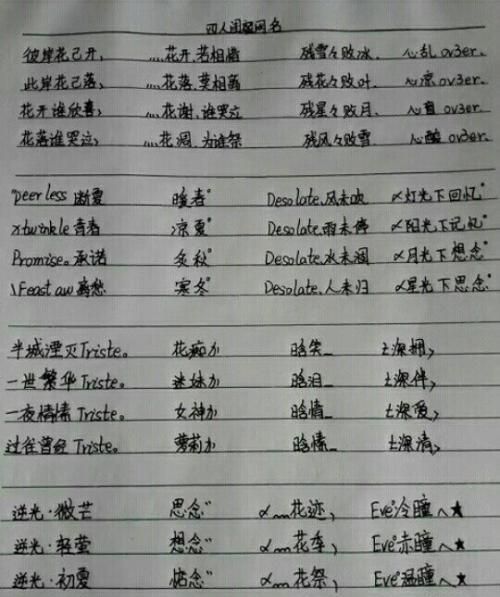 四人闺蜜网名
彼岸花已开, ….花开.若相惜 残雪々败冰. 心乱 ov3er.
此岸花已落, ….花落.莫相离 残花々败叶. 心凉 ov3er.
花开谁欣喜, ….花谢.谁哭泣 残星々败月. 心着 ov3er.
花落谁哭泣, ….花凋.为谁祭 残风々败雪 心酸 ov3er.
"peerless 断夏 暖春° Desolate.风未吹 〆灯光下回忆°
xtwinkle 青春 凉夏° Desolate.雨未停 〆阳光下记忆°
Promise。承诺 冬秋° Desolate.水未凋 〆月光下想念°
\Feast aw 离愁 寒冬° Desolate.人未归 〆星光下思念°
半城湮灭Triste。 花痴か 晗笑_ ±深拥,
一世繁华Triste。 迷妹か 晗泪_ ±深伴,
一夜情愫Triste。 女神か 晗情_ ±深爱,
过往曾经Triste。 萝莉か 晗情_ ±深清,
逆光·微芒 思念" 〆﹏花迹, Eve°冷瞳へ★
逆光·轻萤 想念" 〆﹏花季, Eve°赤瞳へ★
逆光·初夏 惦念" 〆﹏花祭, Eve°温瞳へ★